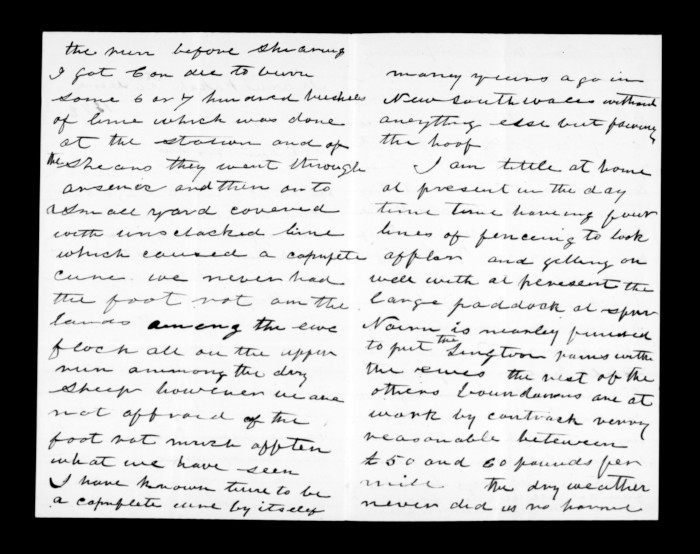 the run before shearing
I got 6 on dee to burn
some 6 or 7 hundred bushels
of lime which was done
at the station and of
the shears they went through
arsenic and then on to
a small yard covered
with unslacked lime
which caused a capuplete
cure we never had
the foot rot on the
lands among the ewe
flock all on the upper
run ammong the dry
sheep however we are
not affraid of the
foot rot much affter
what we have seen
I have known time to be
a capuplete cure by itself
maney years ago in
New South Wales without
aneything else but pareing
the hoof
I am little at home
at present in the day
time time haveing four
lines of fenceing to look
affter and getting on
well with at peresent the
large paddock at spur
is nearley finished
to put the rams with
the ewes the rest of the
others boundaries are at
work by contrack verry
reasonable between
£50 and 60 pounds per
mile the dry weather
never did us no